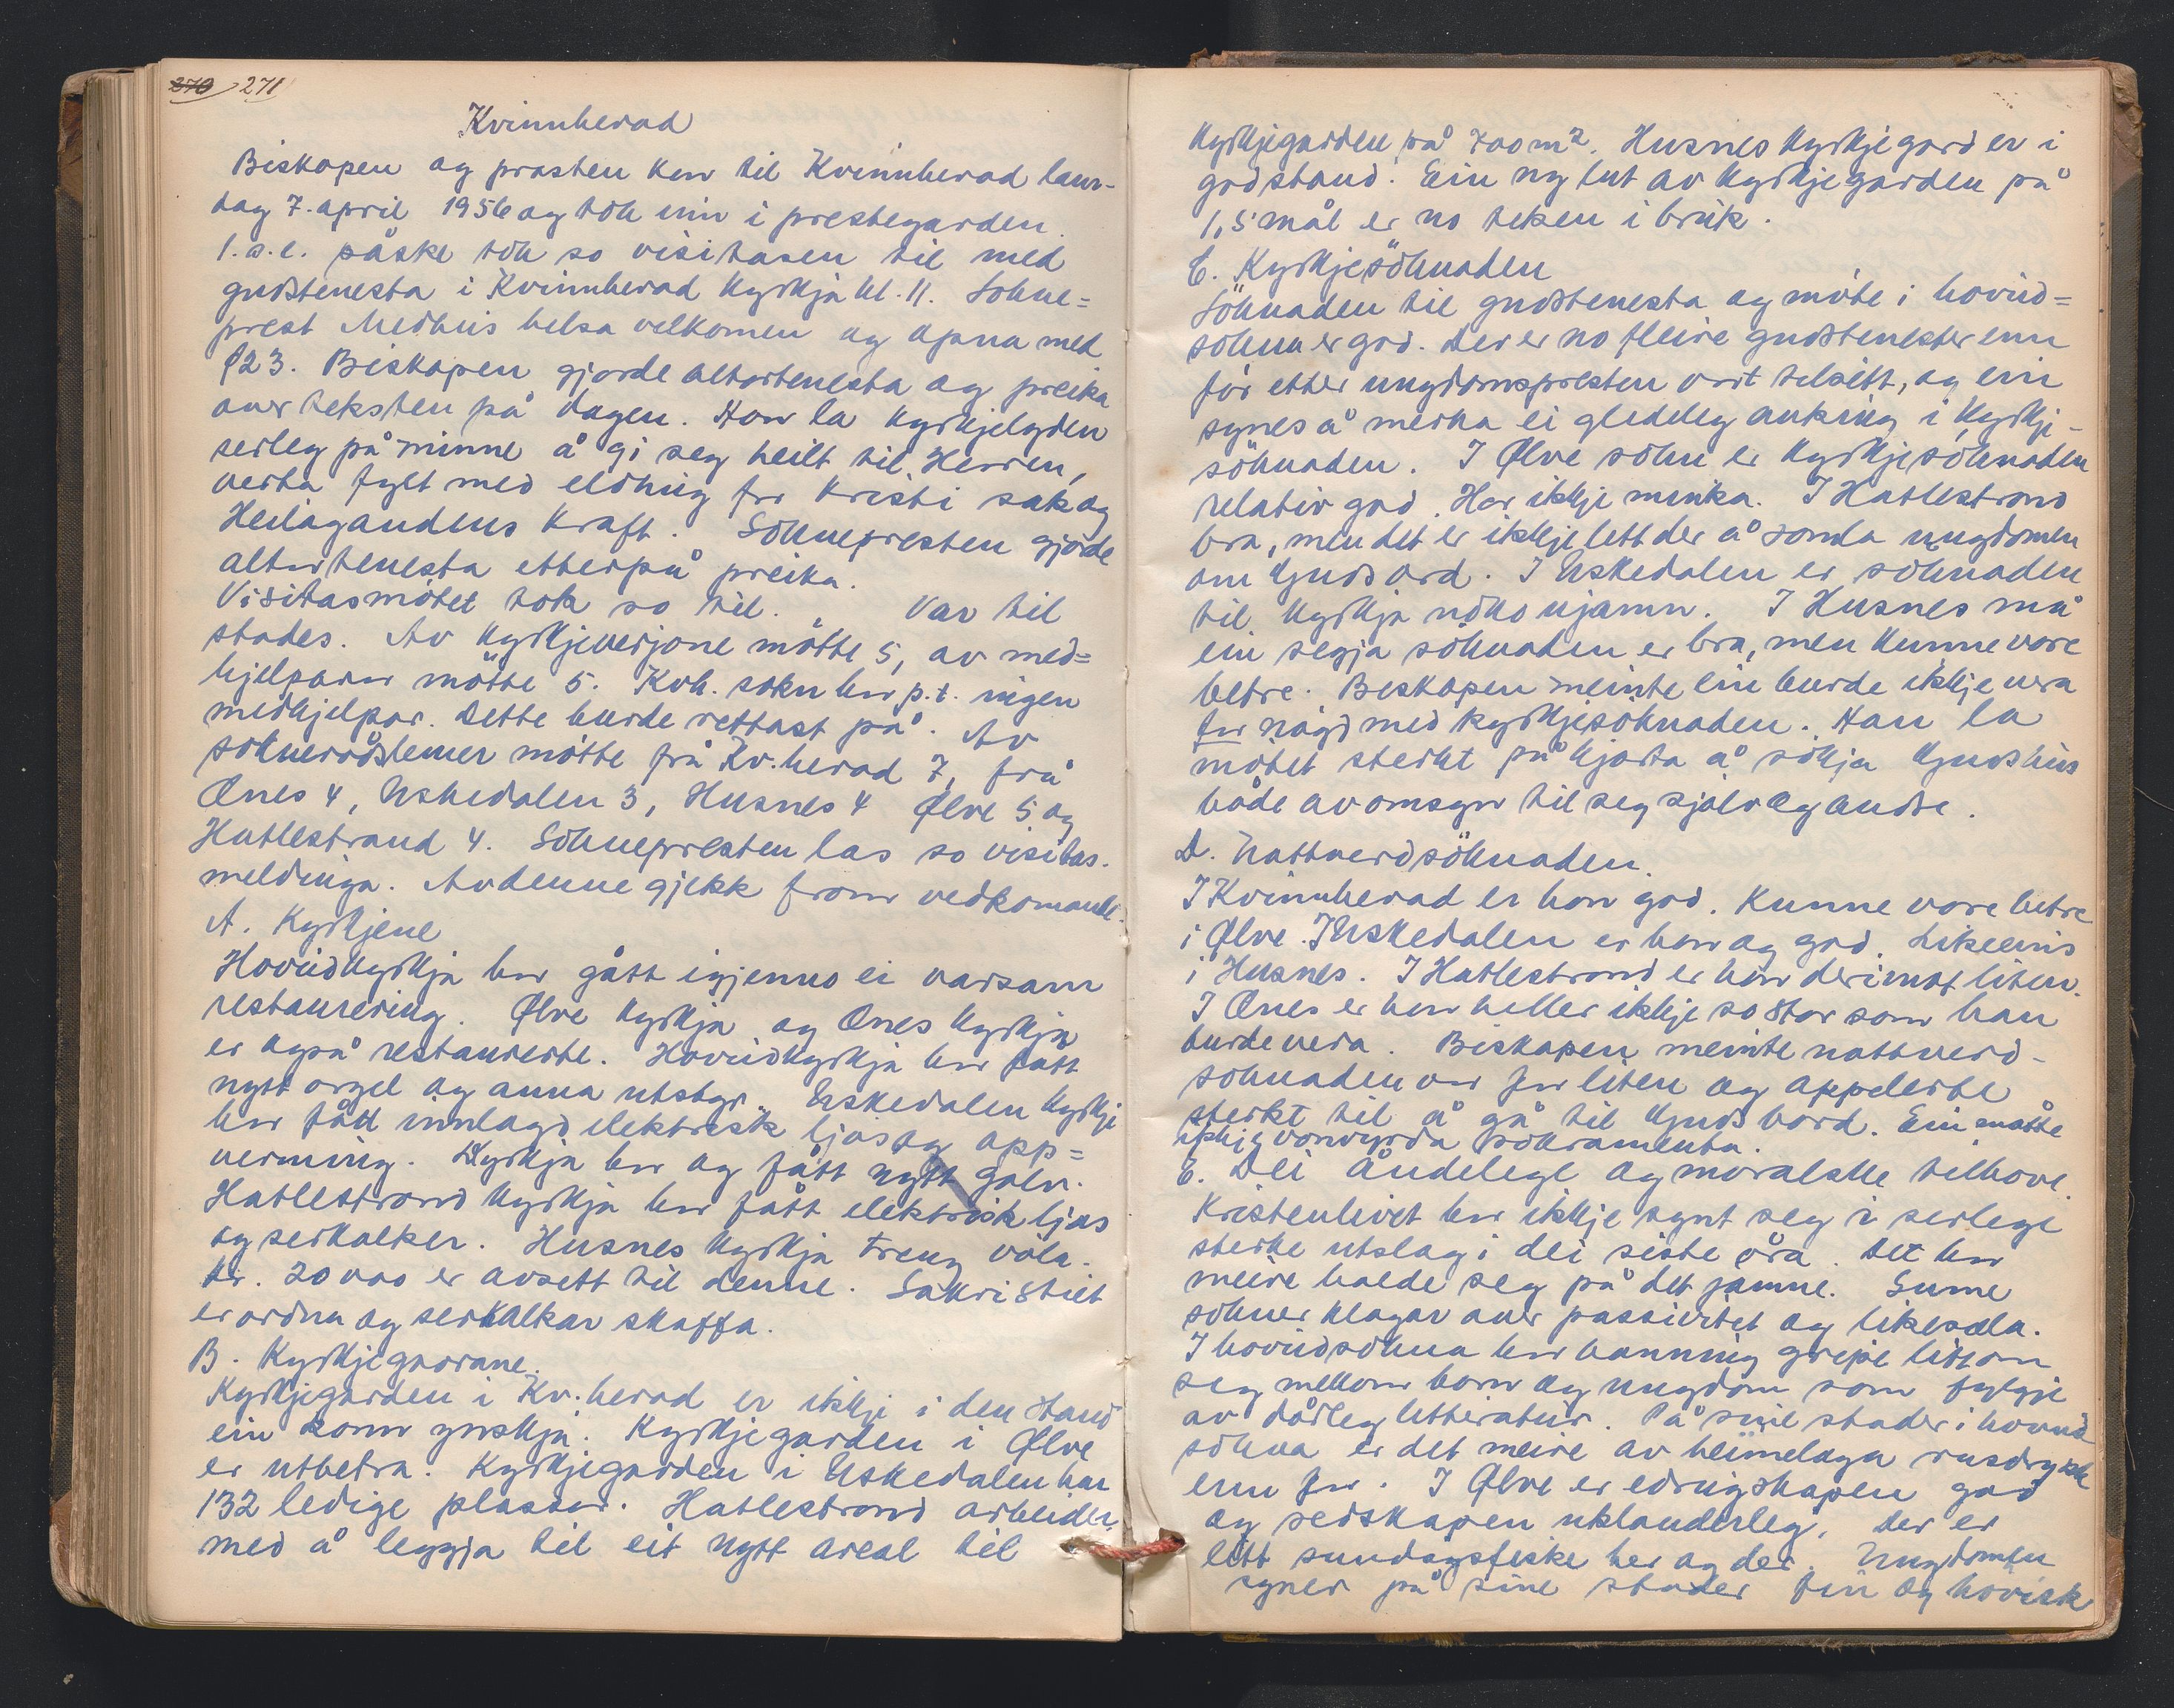 270 271
Kvinnherad
Biskopen og prosten kom til Kvinnherad laur-
dag 7. april 1956 og tok inn i prestegarden.
1. s. e. påske tok so visitasen til med
gudstenesta i Kvinnherad kyrkja kl. 11. Sokne=
prest Medhus helsa velkomen og opna med
§23. Biskopen gjorde altartenesta og preika
over teksten på dagen. Han la kyrkjelyden
serleg på minne å gi seg heilt til Herren,
verta fylt med eldhug for Kristi sak og
Heilagandens kraft. Soknepresten gjorde
altartenesta etterpå preika.
Visitasmötet tok so til. Var til
stades. Av kyrkjeverjone mötte 5, av med=
hjelparar mötte 5. Kvh. sokn har p.t. ingen
medhjelpar. Dette burde rettast på. Av
sokneråðslemer mötte frå Kv.herad 7, frå
Ænes 4, Uskedalen 3, Husnes 4 Ølve 5 og
Hatlestrand 4. Soknepresten las so visitas-
meldinga. Av denne gjekk fram vedkomande.
A. Kyrkjene
Hovudkyrkja har gått igjennom ei varsam
restaurering. Ølve kyrkja og Ænes kyrkja
er også restaurerte. Hovudkyrkja har fått
nytt orgel og anna utstyr. Uskedalen kyrkje
har fått innlagd elektrisk ljos og opp=
verming. Kyrkja har og fått nytt golv.
Hatlestrand kyrkja har fått elektrisk ljos
og serkalker. Husnes kyrkja treng völa.
kr. 20 000 er avsett til denne. Sakristiet
er ordna og serkalkar skaffa.
B. Kyrkjegardane.
Kyrkjegarden i Kv.herad er ikkje i den stand
ein kann ynskja. Kyrkjegarden i Ølve
er utbetra. Kyrkjegarden i Uskedalen har
132 ledige plassar. Hatlestrand arbeider
med å leggja til eit nytt areal til
kyrkjegarden på 700 m². Husnes kyrkjegard er i
god stand. Ein ny lut av kyrkjegarden på
1,5 mål er no teken i bruk.
C. Kyrkjesöknaden
Söknaden til gudstenesta og möte i hovud=
sokna er god. Der er no fleire gudstenester enn
för etter ungdomspresten vart tilsett, og ein
synes å merka ei gledeleg auking i kyrkje-
söknaden. I Ølve sokn er kyrkjesöknaden
relativ god. Har ikkje minka. I Hatlestrand
bra, men det er ikkje lett der å samla ungdomen
om Guds ord. I Uskedalen er söknaden
til kyrkja noko ujamn. I Husnes må
ein segja söknaden er bra, men kunne vore
betre. Biskopen meinte ein burde ikkje vera
for nögd med kyrkjesöknaden. Han la
mötet sterkt på hjarta å sökja Guds hus
både av omsyn til seg sjölv og andre.
D. Nattverdsöknaden.
I Kvinnherad er han god. Kunne vore betre
i Ølve. I Uskedalen er han og god. Likeeins
i Husnes. I Hatlestrand er han derimot liten.
I Ænes er han heller ikkje so stor som han
burde vera. Biskopen meinte nattverd-
söknaden var for liten og appelerte
sterkt til å gå til Guds bord. Ein måtte
ikkje vanvyrda sakramenta.
E. Dei åndelege og moralske tilhøve.
Kristenlivet har ikkje synt seg i serlege
sterke utslag i dei siste åra. Det har
meire halde seg på det jamne. Sume
sokner klagar over passivitet og likesæla.
I hovudsokna har banning gripe litt om
seg mellom born og ungdom som fylgje
av dårleg litteratur. På sine stader i hovud-
sokna er det meire av heimelaga rusdrykk
enn för. I Ølve er edrugskapen god
og sedskapen uklanderleg. Der er
litt sundagsfiske her og der. Ungdomen
syner på sine stader fin og hövisk